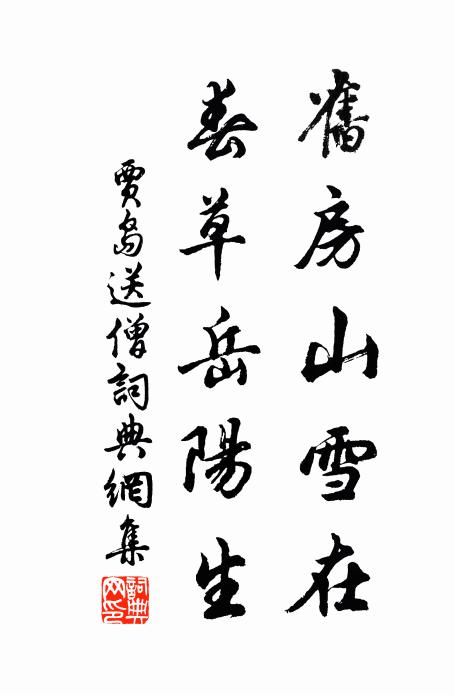 舊房山雪在
春草岳陽生
賈島送僧詞典網集
詞典網印